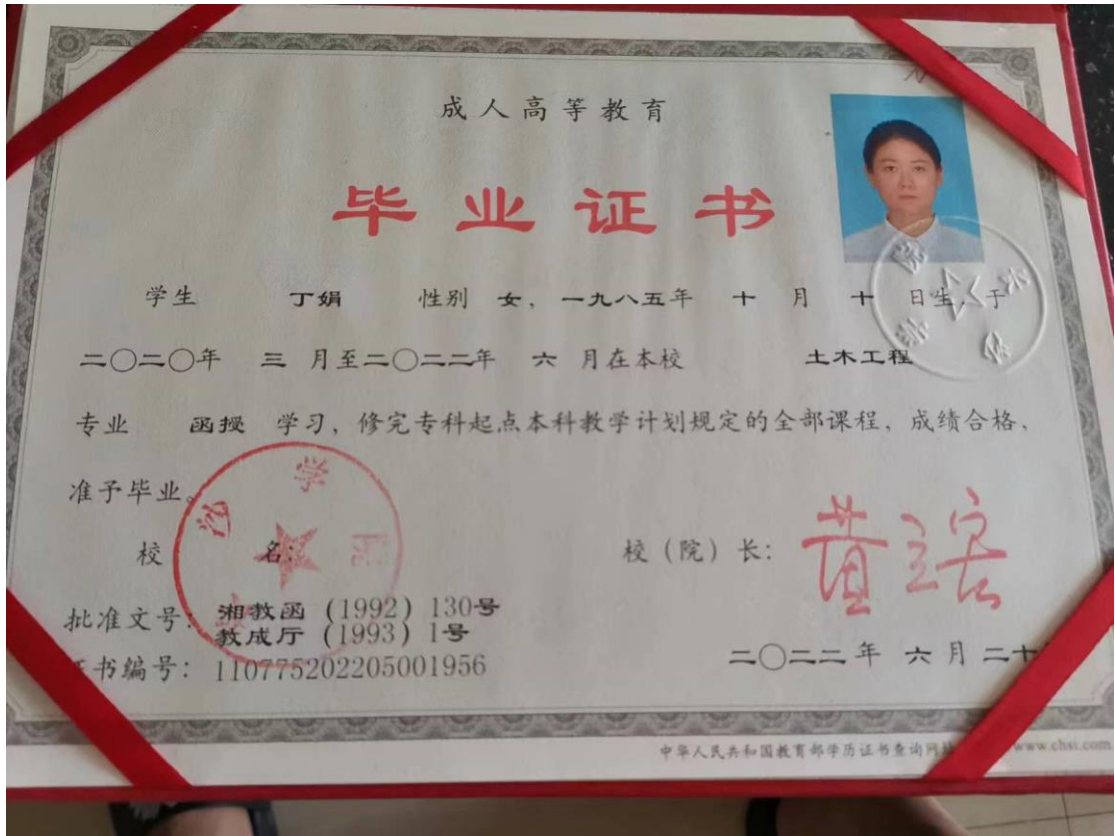 成人高等教育
毕业证书
学生 丁娟 性别 女，一九八五年 十 月 十 日生，于
二〇二〇年 三 月至二〇二二年 六 月在本校 土木工程
专业 函授 学习，修完专科起点本科教学计划规定的全部课程，成绩合格，
准予毕业。
校 名：
校（院）长：
批准文号：湘教函（1992）130号
教成厅（1993）1号
书编号：110775202205001956
二〇二二年 六月 二十
中华人民共和国教育部学历证书查询网 www.chsi.com